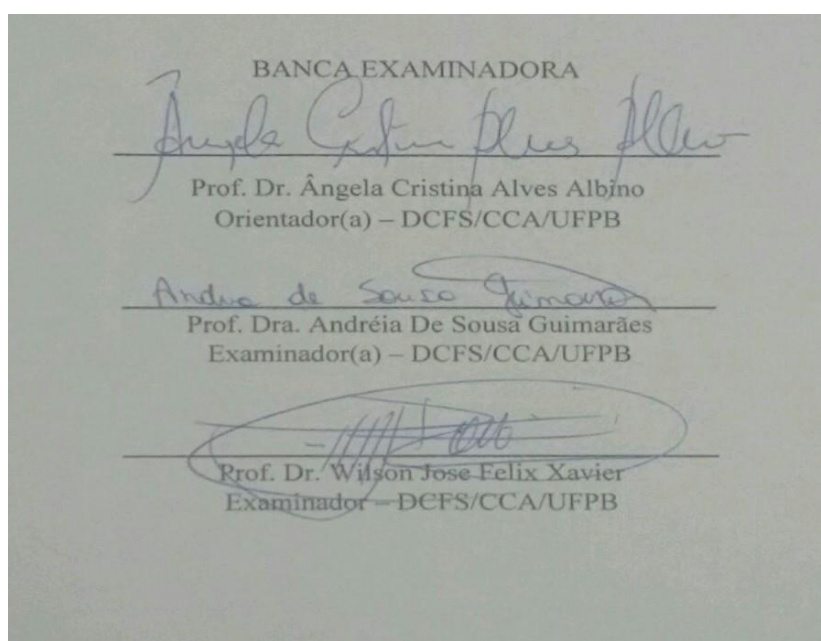 BANCA EXAMINADORA
Ângela Cristina Alves Albino
Prof. Dr. Ângela Cristina Alves Albino
Orientador(a) – DCFS/CCA/UFPB
Andréia de Sousa Guimarães
Prof. Dra. Andréia De Sousa Guimarães
Examinador(a) – DCFS/CCA/UFPB
Prof. Dr. Wilson Jose Felix Xavier
Examinador – DCFS/CCA/UFPB